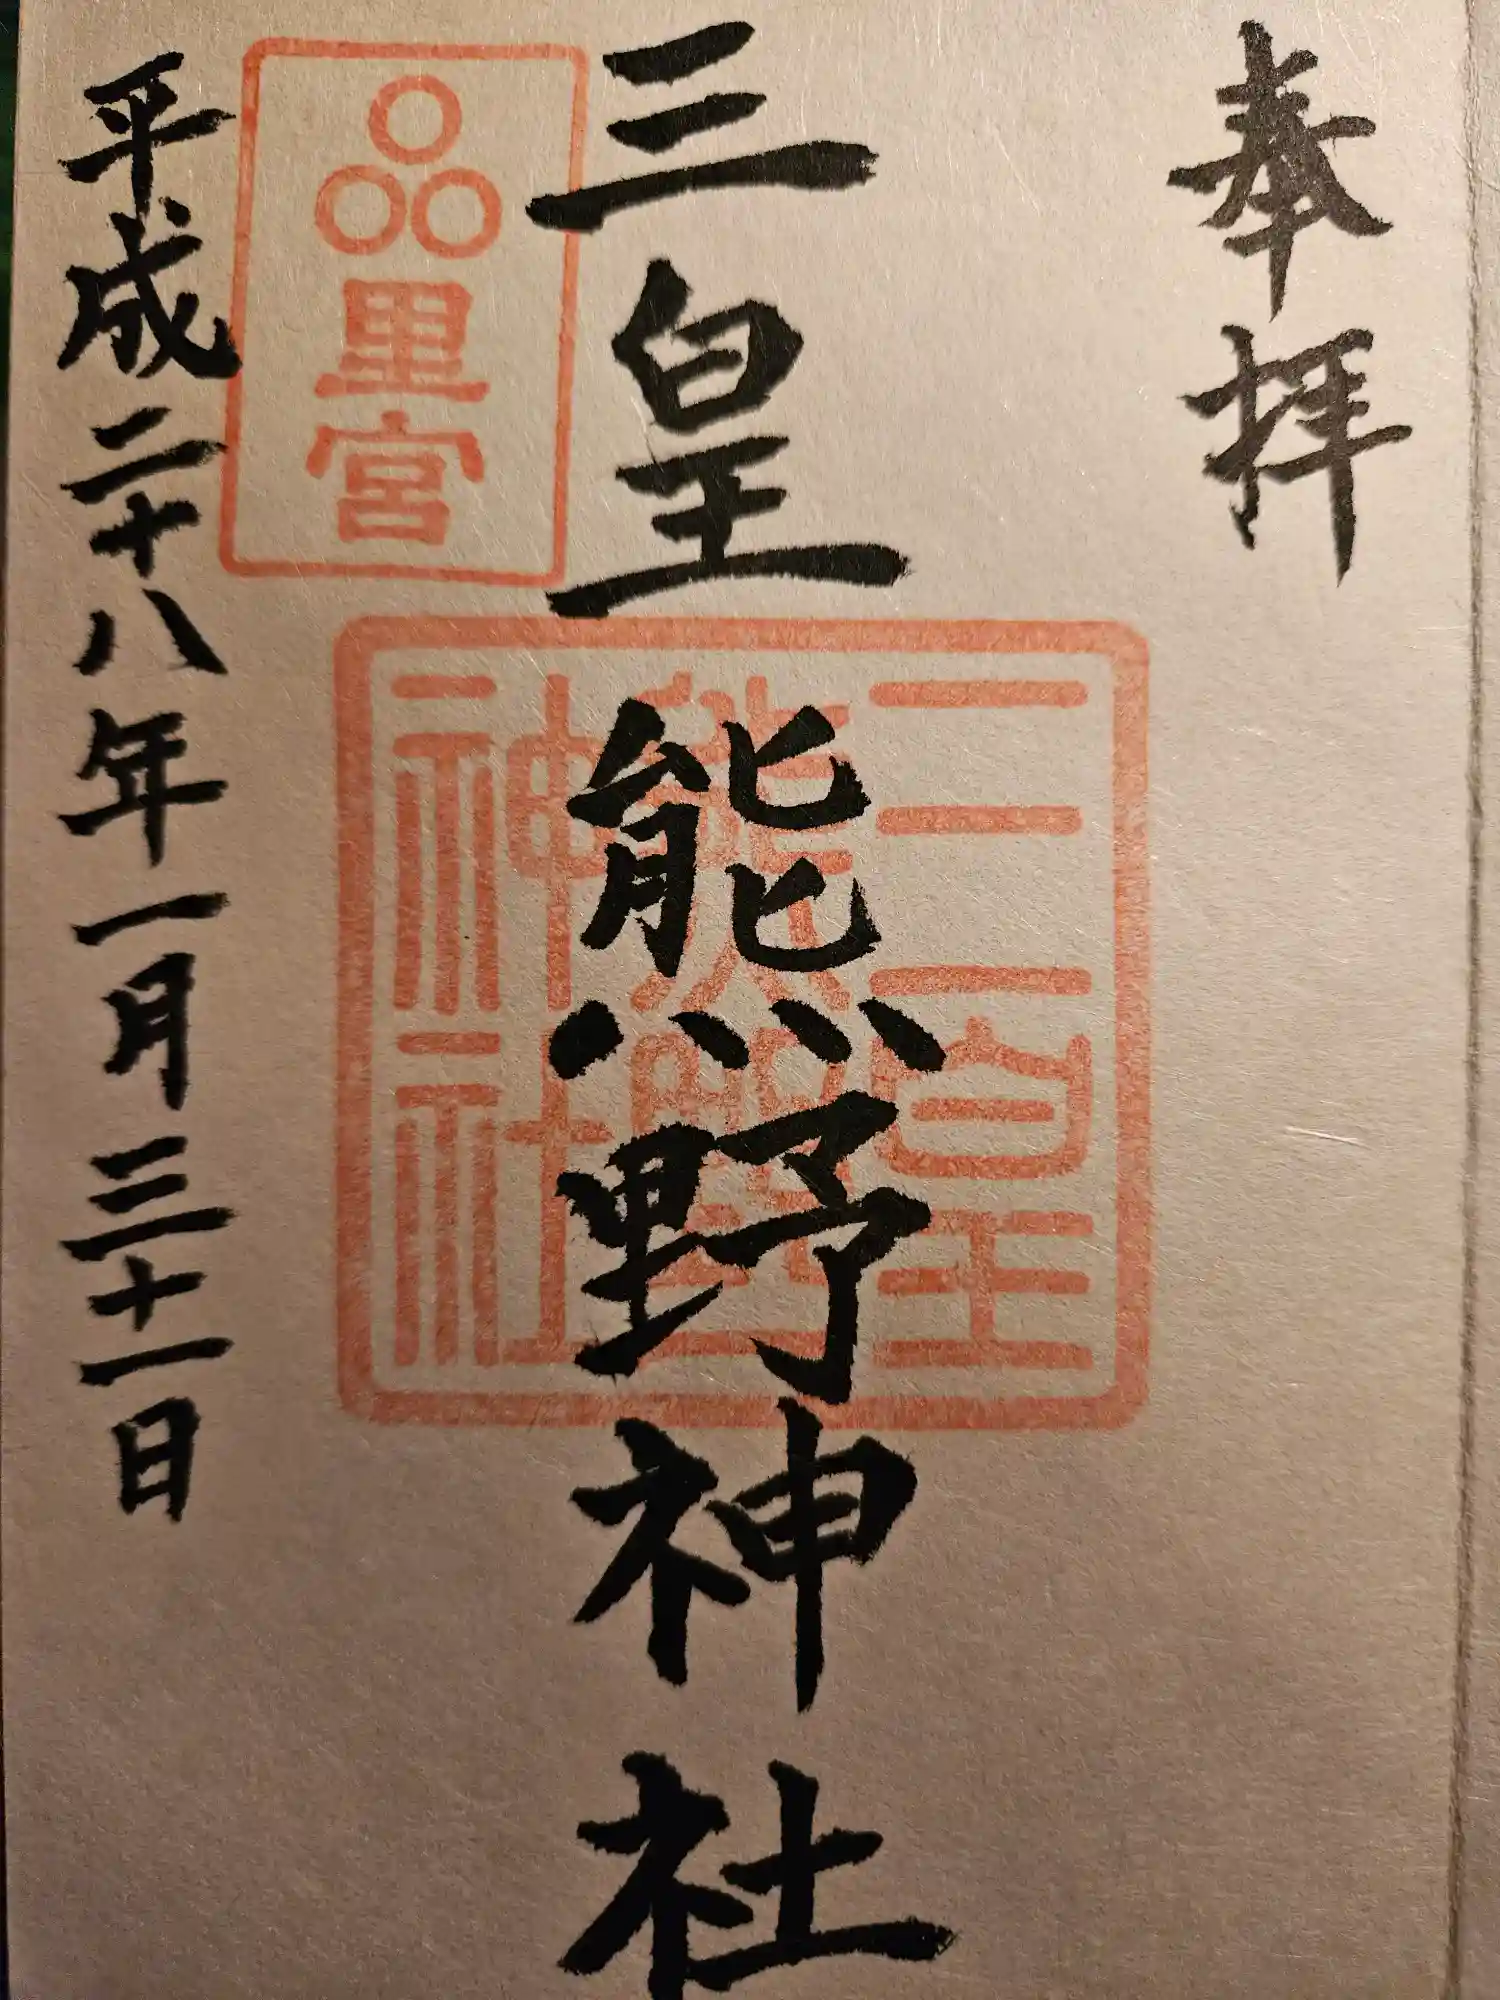 奉拝
三皇熊野神社
里宮
三皇
熊野
神社
平成二十八年一月三十一日